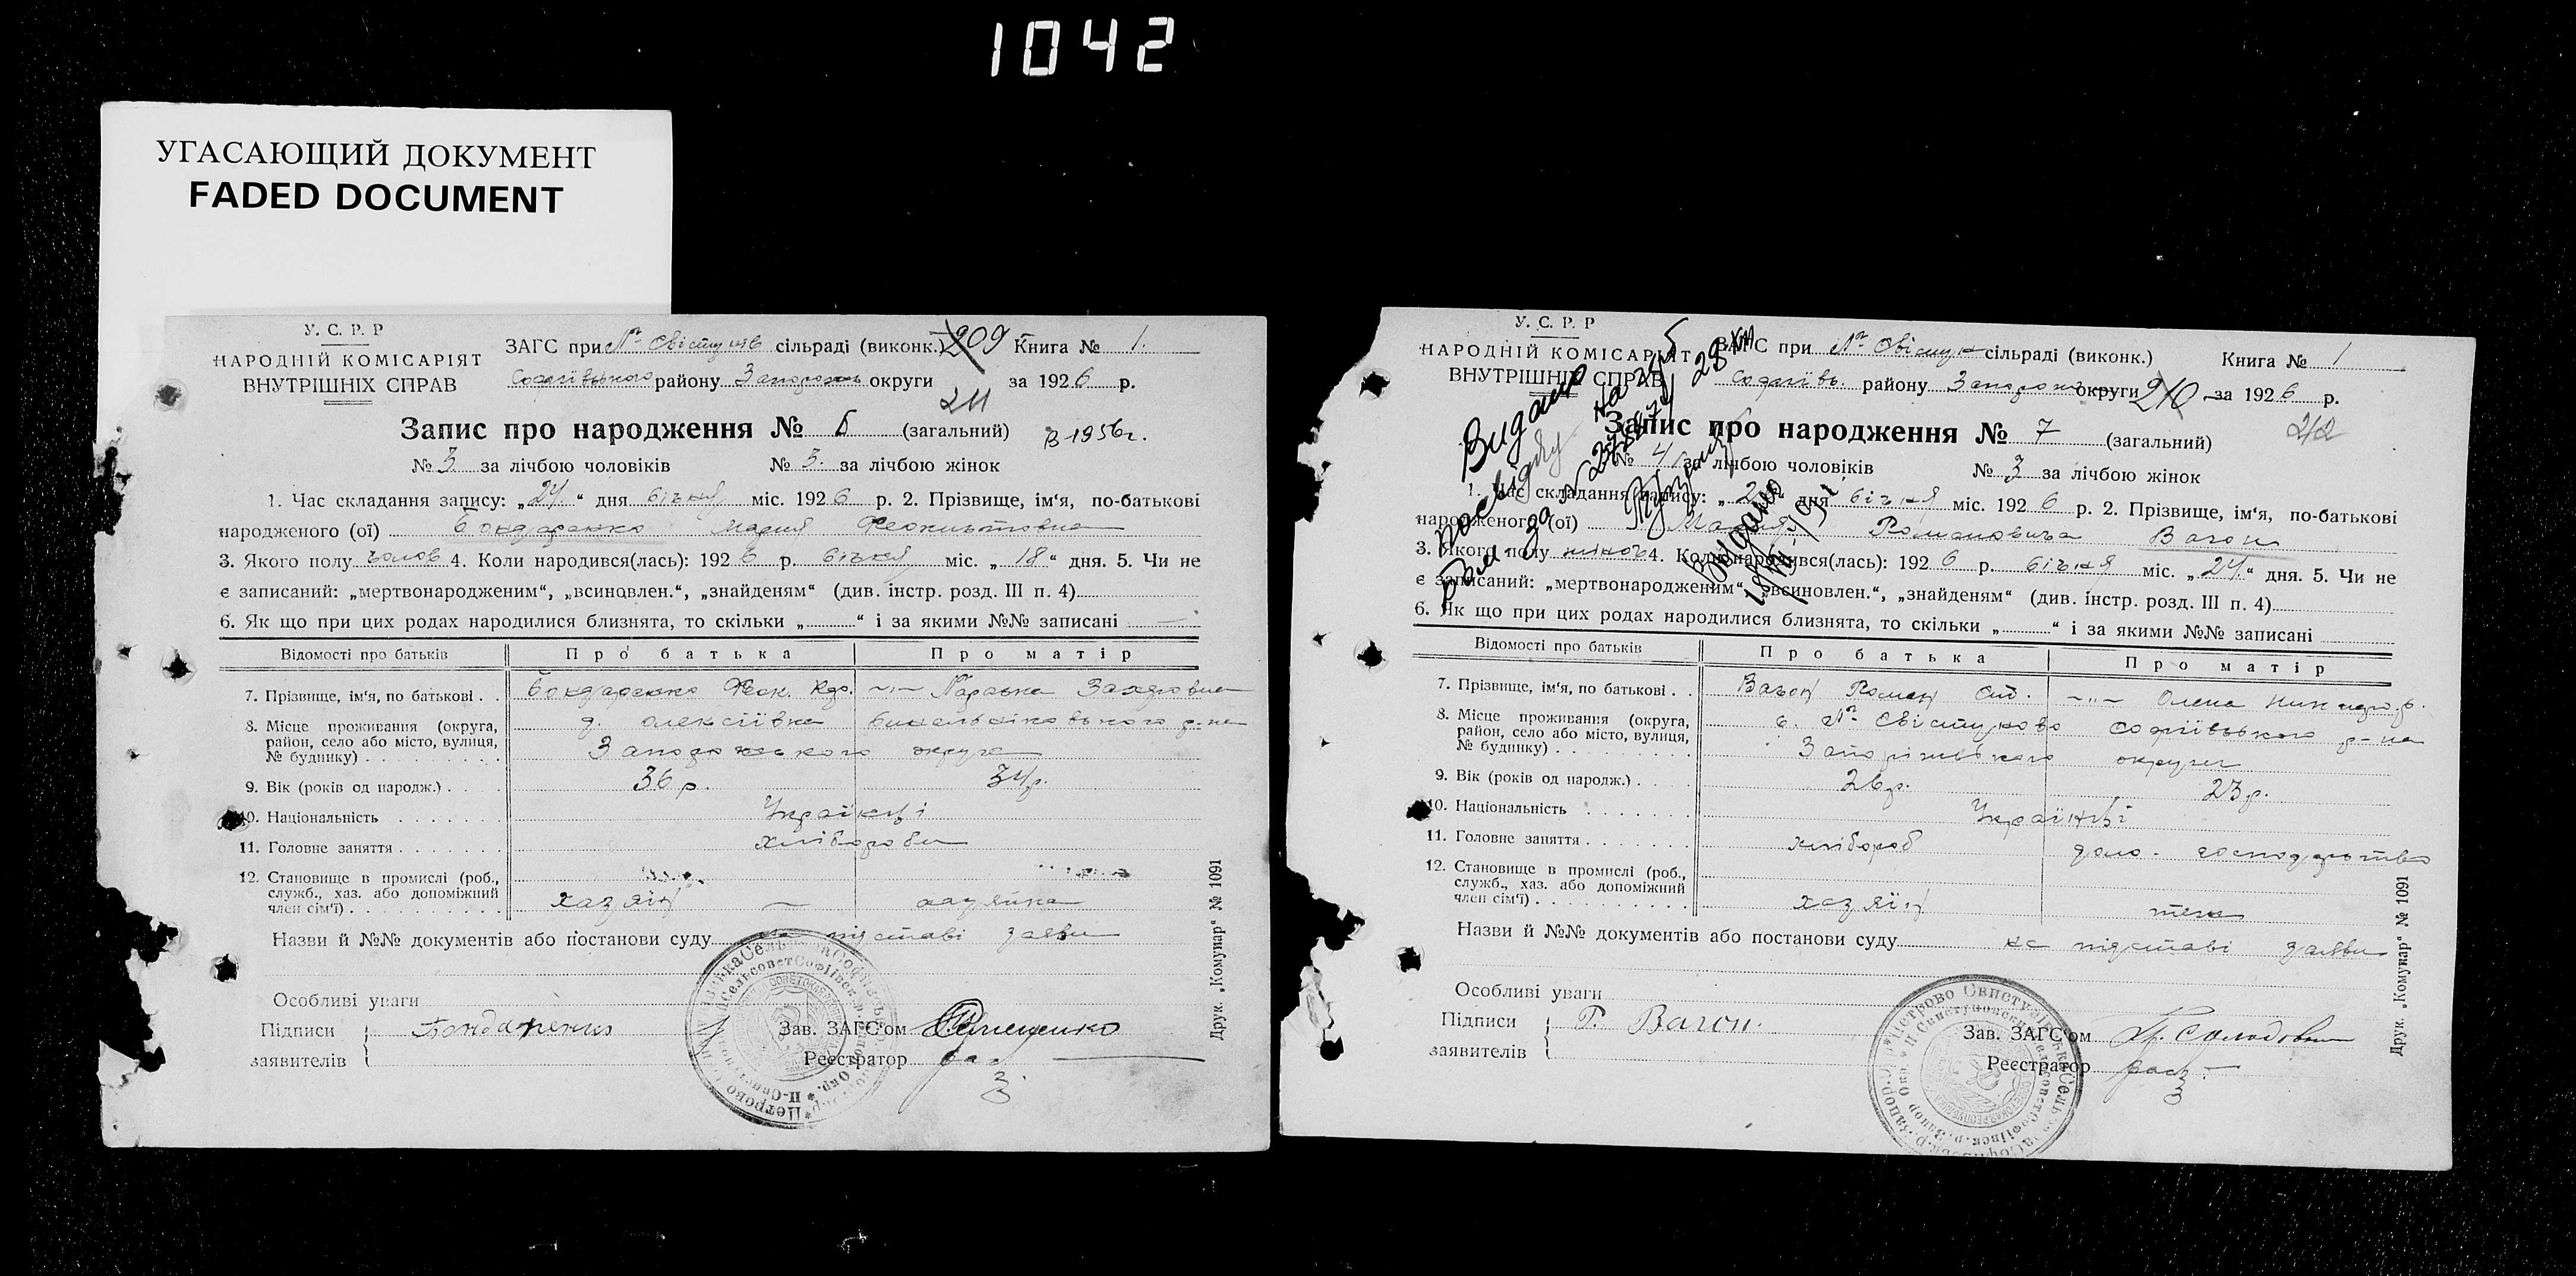 1042
УГАСАЮЩИЙ ДОКУМЕНТ
FADED DOCUMENT
У. С. Р. Р
НАРОДНІЙ КОМІСАРІЯТ
ВНУТРІШНІХ СПРАВ
ЗАГС при сільраді (виконк.) 209 Книга № 1.
Софіївського району округи за 1926 р.
211
Запис про народження № 6 (загальний) В-1956г.
№ 3 за лічбою чоловіків № 3. за лічбою жінок
1. Час складання запису: „24“ дня січня міс. 1926 р. 2. Прізвище, ім'я, по-батькові
народженого (ої) Бондаренко Мария
3. Якого полу 4. Коли народився(лась): 1926 р. січня міс. „18“ дня. 5. Чи не
є записаний: „мертвонародженим“, „всиновлен.“, „знайденям“ (див. інстр. розд. III п. 4)
6. Як що при цих родах народилися близнята, то скільки „ “ і за якими №№ записані —
Відомості про батьків Про батька Про матір
7. Прізвище, ім'я, по батькові . . Бондаренко Параска Захаровна
8. Місце проживання (округа, район, село або місто, вулиця, № будинку) д. Олексіївка р-на
Запорожського округа
9. Вік (років од народж.) . . . 36 р. 34 р.
10. Національність Українці
11. Головне заняття хлібороби
12. Становище в промислі (роб., служб., хаз. або допоміжний член сім'ї) хазяїн — хазяйка
Назви й №№ документів або постанови суду на підставі заяви
Особливі уваги
Підписи заявителів Бондаренко
Зав. ЗАГС'ом
Реєстратор
Друк. „Комунар“ № 1091
У. С. Р. Р
НАРОДНІЙ КОМІСАРІЯТ
ВНУТРІШНІХ СПРАВ
ЗАГС при сільраді (виконк.) Книга № 1
Софіївь. району округи 210 за 1926 р.
212
Запис про народження № 7 (загальний)
№ 4 за лічбою чоловіків № 3 за лічбою жінок
Видано
1. Час складання запису: „ “ дня січня міс. 1926 р. 2. Прізвище, ім'я, по-батькові
народженого (ої) Мария Романовича Вагон
3. Якого полу жіноч 4. Коли народився(лась): 1926 р. січня міс. „24“ дня. 5. Чи не
є записаний: „мертвонародженим“, „всиновлен.“, „знайденям“ (див. інстр. розд. III п. 4)
6. Як що при цих родах народилися близнята, то скільки „ “ і за якими №№ записані
Відомості про батьків Про батька Про матір
7. Прізвище, ім'я, по батькові . . Вагон Роман -„- Олена
8. Місце проживання (округа, район, село або місто, вулиця, № будинку) с. Софіївського р-на
Запоріжського округи
9. Вік (років од народж.) . . . 26 р. 23 р.
10. Національність Українці
11. Головне заняття хлібороб
12. Становище в промислі (роб., служб., хаз. або допоміжний член сім'ї) хазяїн теж
Назви й №№ документів або постанови суду на підставі заяви
Особливі уваги
Підписи заявителів Р. Вагон.
Зав. ЗАГС'ом
Реєстратор
Друк. „Комунар“ № 1091